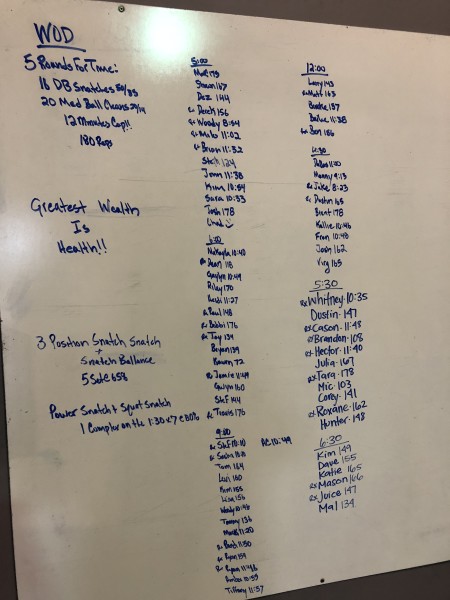 WOD
5 Rounds For Time:
16 DB Snatches 50/35
20 Med Ball Cleans 20/14
12 Minutes Cap!!
180 Reps
Greatest Wealth
Is
Health!!
3 Position Snatch Snatch
+
Snatch Ballance
5 Sets
Power Snatch + Squat Snatch
1 Complex on the 1:30 x7 @ 80%
5:00
Matt 173
167
Daz 144
Rx Derek 156
Rx Woody 8:54
Rx Malo 11:02
Rx Brian 11:32
124
Jenn 11:38
Kim 10:54
Sara 10:33
Josh 178
Chad
6:00
Makayla 10:40
Dean 118
10:49
Riley 170
11:27
Rx Paul 148
Rx Bobbi 176
Rx Jay 134
Bryan 139
72
Rx Jamie 11:49
160
Stef 144
Rx Travis 176
9:00
Rx Stef 10:10
Rx Sasha 168
Tom 164
160
Kim 155
Lisa 156
Wendy 10:48
Tammy 136
11:20
Rx 11:50
Rx Ryan 159
Rx Ryan 11:46
Amber 10:55
Tiffany 11:57
RC 10:49
12:00
Larry 143
Rx Matt 163
Brooke 137
11:38
Rx Ben 156
4:30
11:00
Manny 9:13
Rx Jake 8:23
Rx Dustin 165
Brent 178
Kallie 10:46
Fran 10:48
Josh 162
Virg 165
5:30
Rx Whitney 10:35
Dustin 147
Rx Cason 11:48
Rx Brandon 108
Rx Hector 11:40
Julia 167
Rx Tara 178
Mic 103
Corey 141
Rx Roxane 162
Hunter 148
6:30
Kim 149
Dave 155
Katie 165
Rx Mason 166
Rx Juice 147
Mal 134